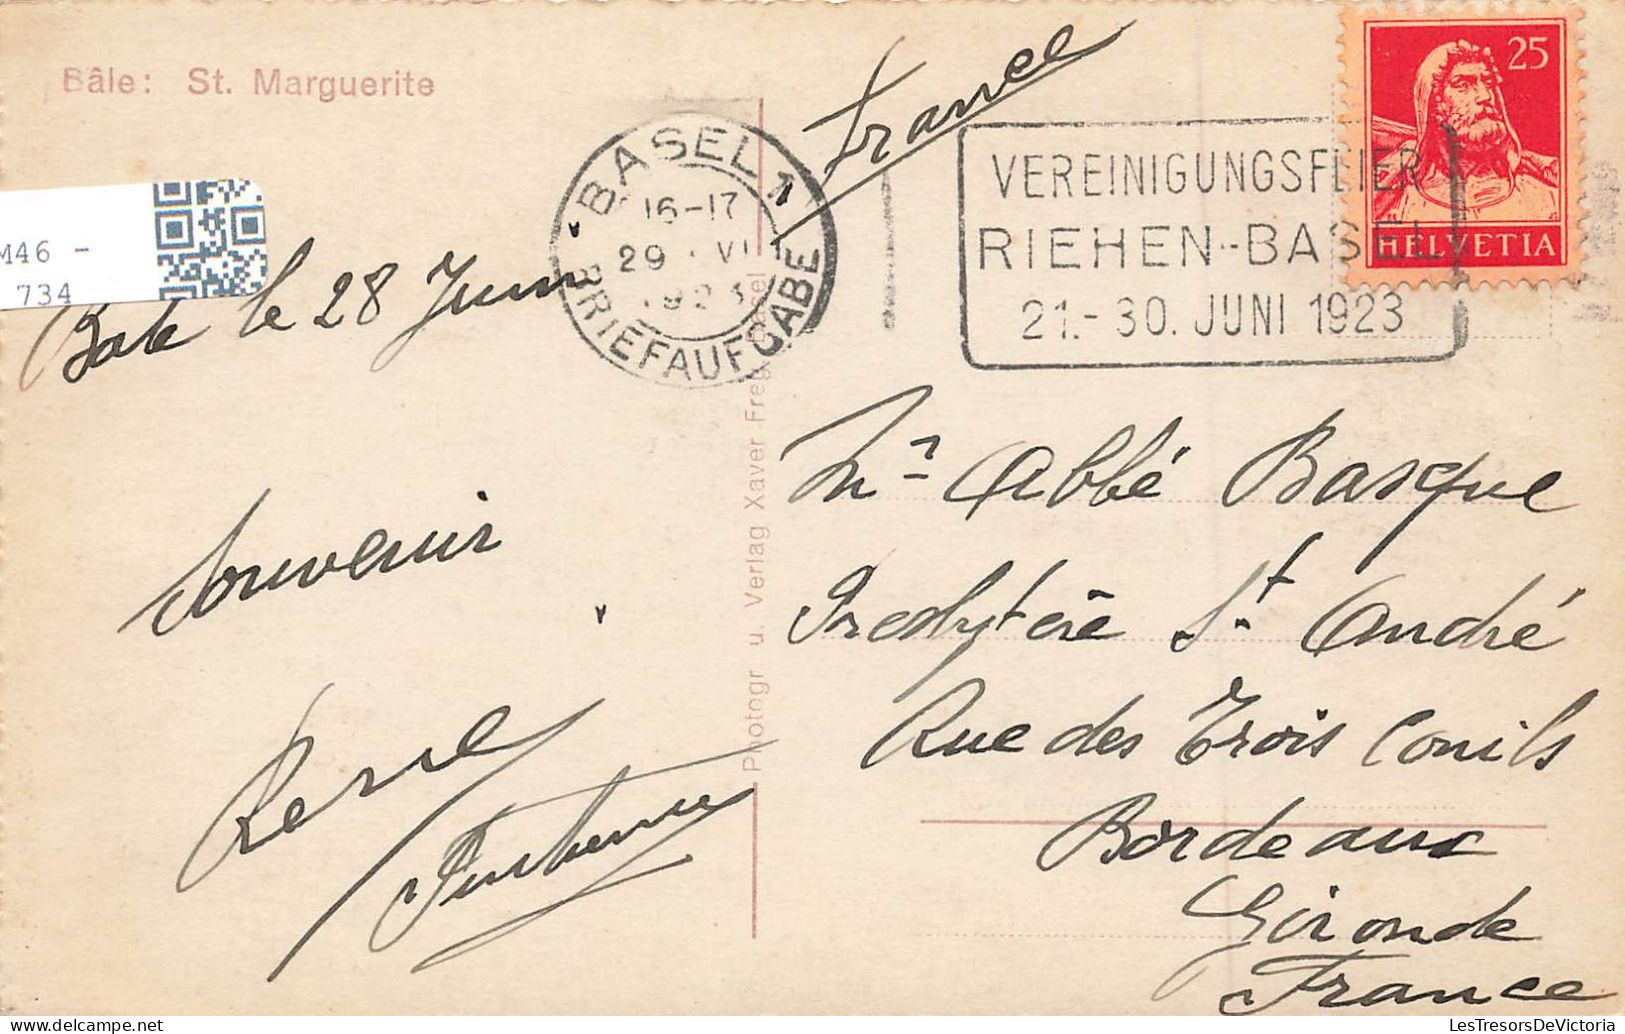 Bâle: St. Marguerite
France
25
HELVETIA
BASEL 1
16-17
29 · VI
1923
BRIEFAUFGABE
VEREINIGUNGSFEIER
RIEHEN-BASEL
21.-30. JUNI 1923
M46 -
734
Bale le 28 Juin
Souvenir
Mr Abbé Basque
Presbytère St. André
Rue des Trois Conils
Bordeaux
Gironde
France
Photogr. u. Verlag Xaver Frey Basel
LesTresorsDeVictoria